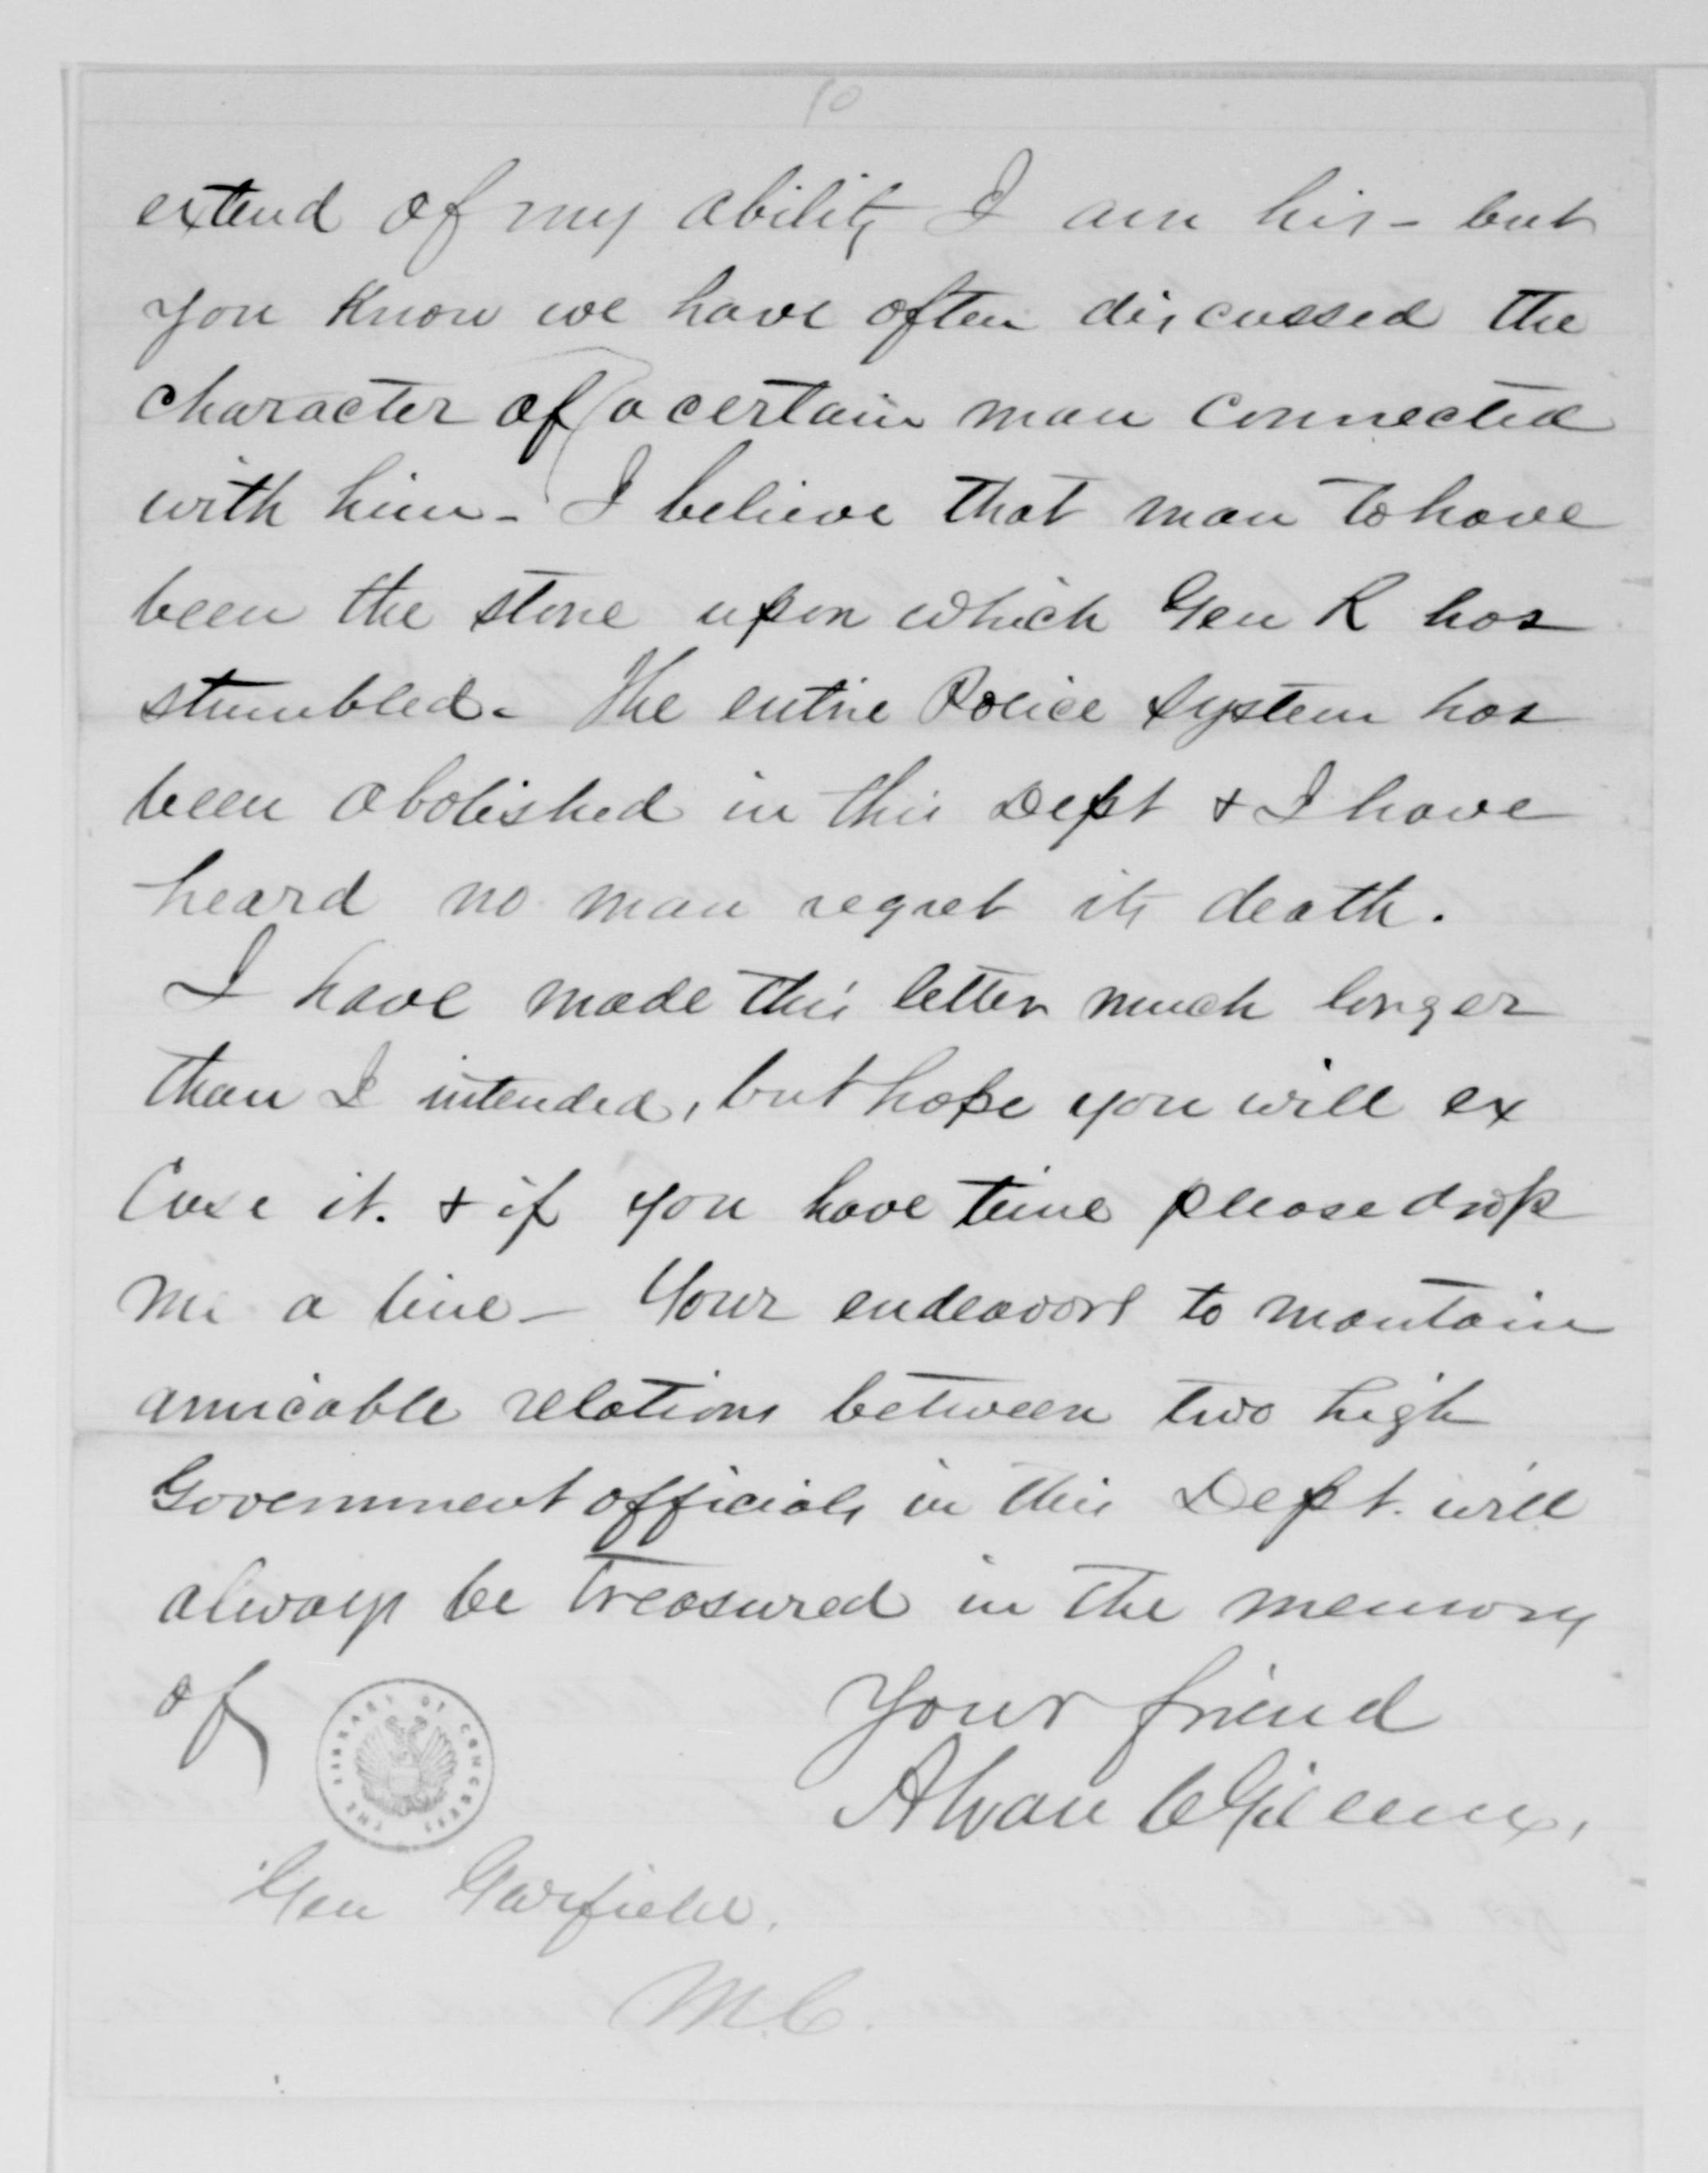 10
extend of my ability I am his - but
you know we have often discussed the
character of a certain man connected
with him - I believe that man to have
been the stone upon which Gen R has
stumbled - The entire Police system has
been abolished in this Dept & I have
heard no man regret its death.
I have made this letter much longer
than I intended, but hope you will ex
cuse it. & if you have time please drop
me a line - Your endeavors to mantain
amicable relations between two high
Government officials in this Dept. will
always be treasured in the memory
of
Your friend
Alvan C Gillem,
THE LIBRARY OF CONGRESS
Gen Garfield.
M.C.